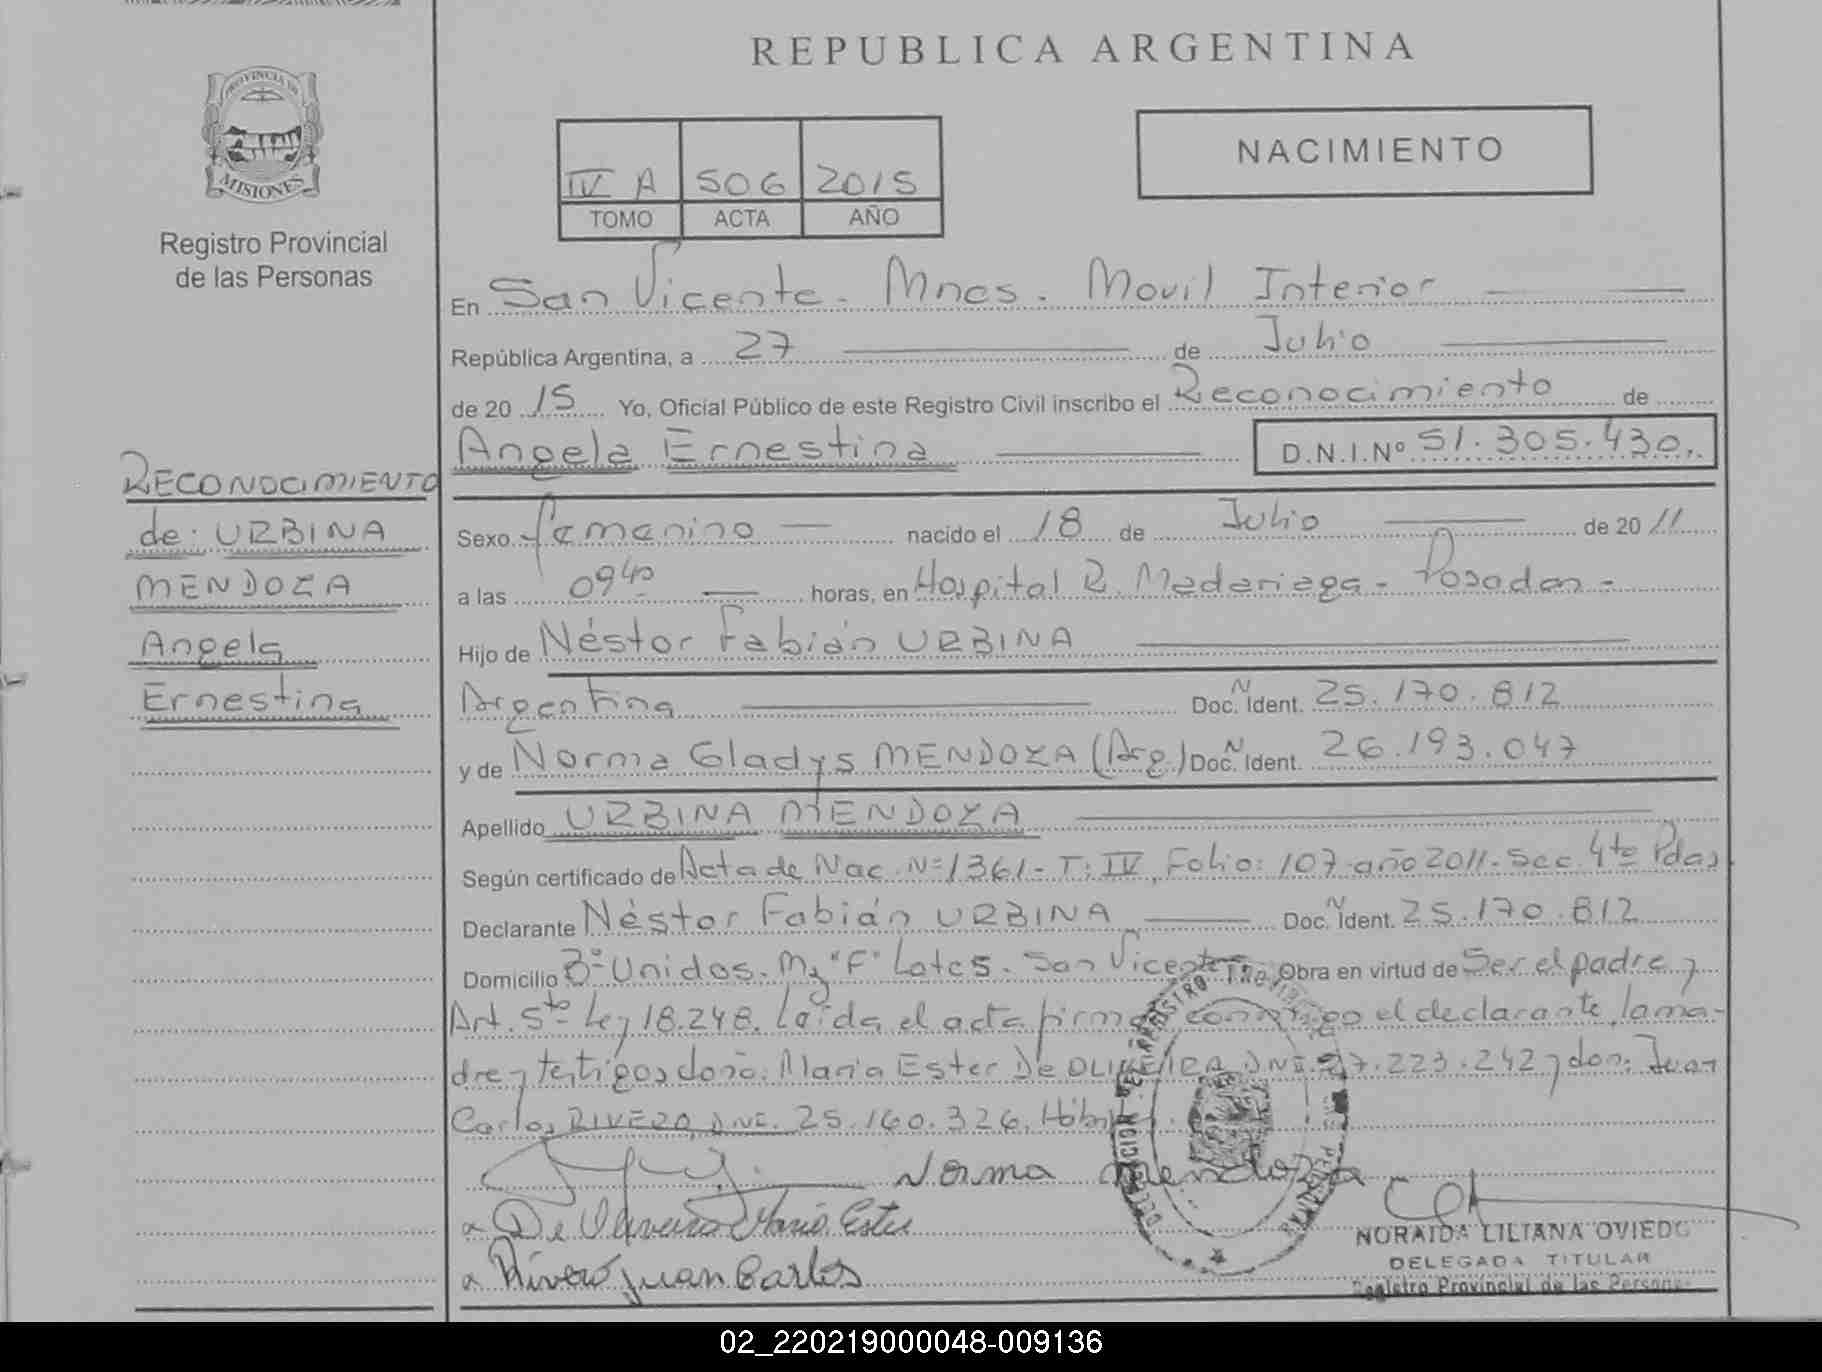 REPUBLICA ARGENTINA
PROVINCIA DE
MISIONES
Registro Provincial
de las Personas
NACIMIENTO
IV A 506 2015
TOMO ACTA AÑO
En San Vicente - Mnes. Movil Interior
República Argentina, a 27 de Julio
de 20 15 Yo, Oficial Público de este Registro Civil inscribo el Reconocimiento de
Angela Ernestina D.N.I.Nº 51.305.430.-
RECONOCIMIENTO
de: URBINA
MENDOZA
Angela
Ernestina
Sexo femenino nacido el 18 de Julio de 20 11
a las 09 40 horas, en Hospital R. Madariaga - Posadas -
Hijo de Néstor Fabián URBINA
Argentina Doc. N Ident. 25.170.812
y de Norma Gladys MENDOZA (Arg.) Doc. N Ident. 26.193.047
Apellido URBINA MENDOZA
Según certificado de Acta de Nac. Nº 1361 - T: IV, Folio: 107 - año 2011 - Sec. 4ta Pdas.
Declarante Néstor Fabián URBINA Doc. N Ident. 25.170.812
Domicilio Bº Unidos. Mz "F" Lote 5. San Vicente Obra en virtud de Ser el padre y
Art. 5to Ley 18.248. Leída el acta firma conmigo el declarante, la ma-
dre y testigos doña: Maria Ester De OLIVEIRA DNI. 27.223.242 y don: Juan
Carlos RIVERO, DNI. 25.160.326. Hábiles.
Norma Mendoza
De Oliveira Maria Ester
Rivero Juan Carlos
DELEGACION REGISTRO PROVINCIAL PERSONAS
NORAIDA LILIANA OVIEDO
DELEGADA TITULAR
Registro Provincial de las Personas
02_220219000048-009136